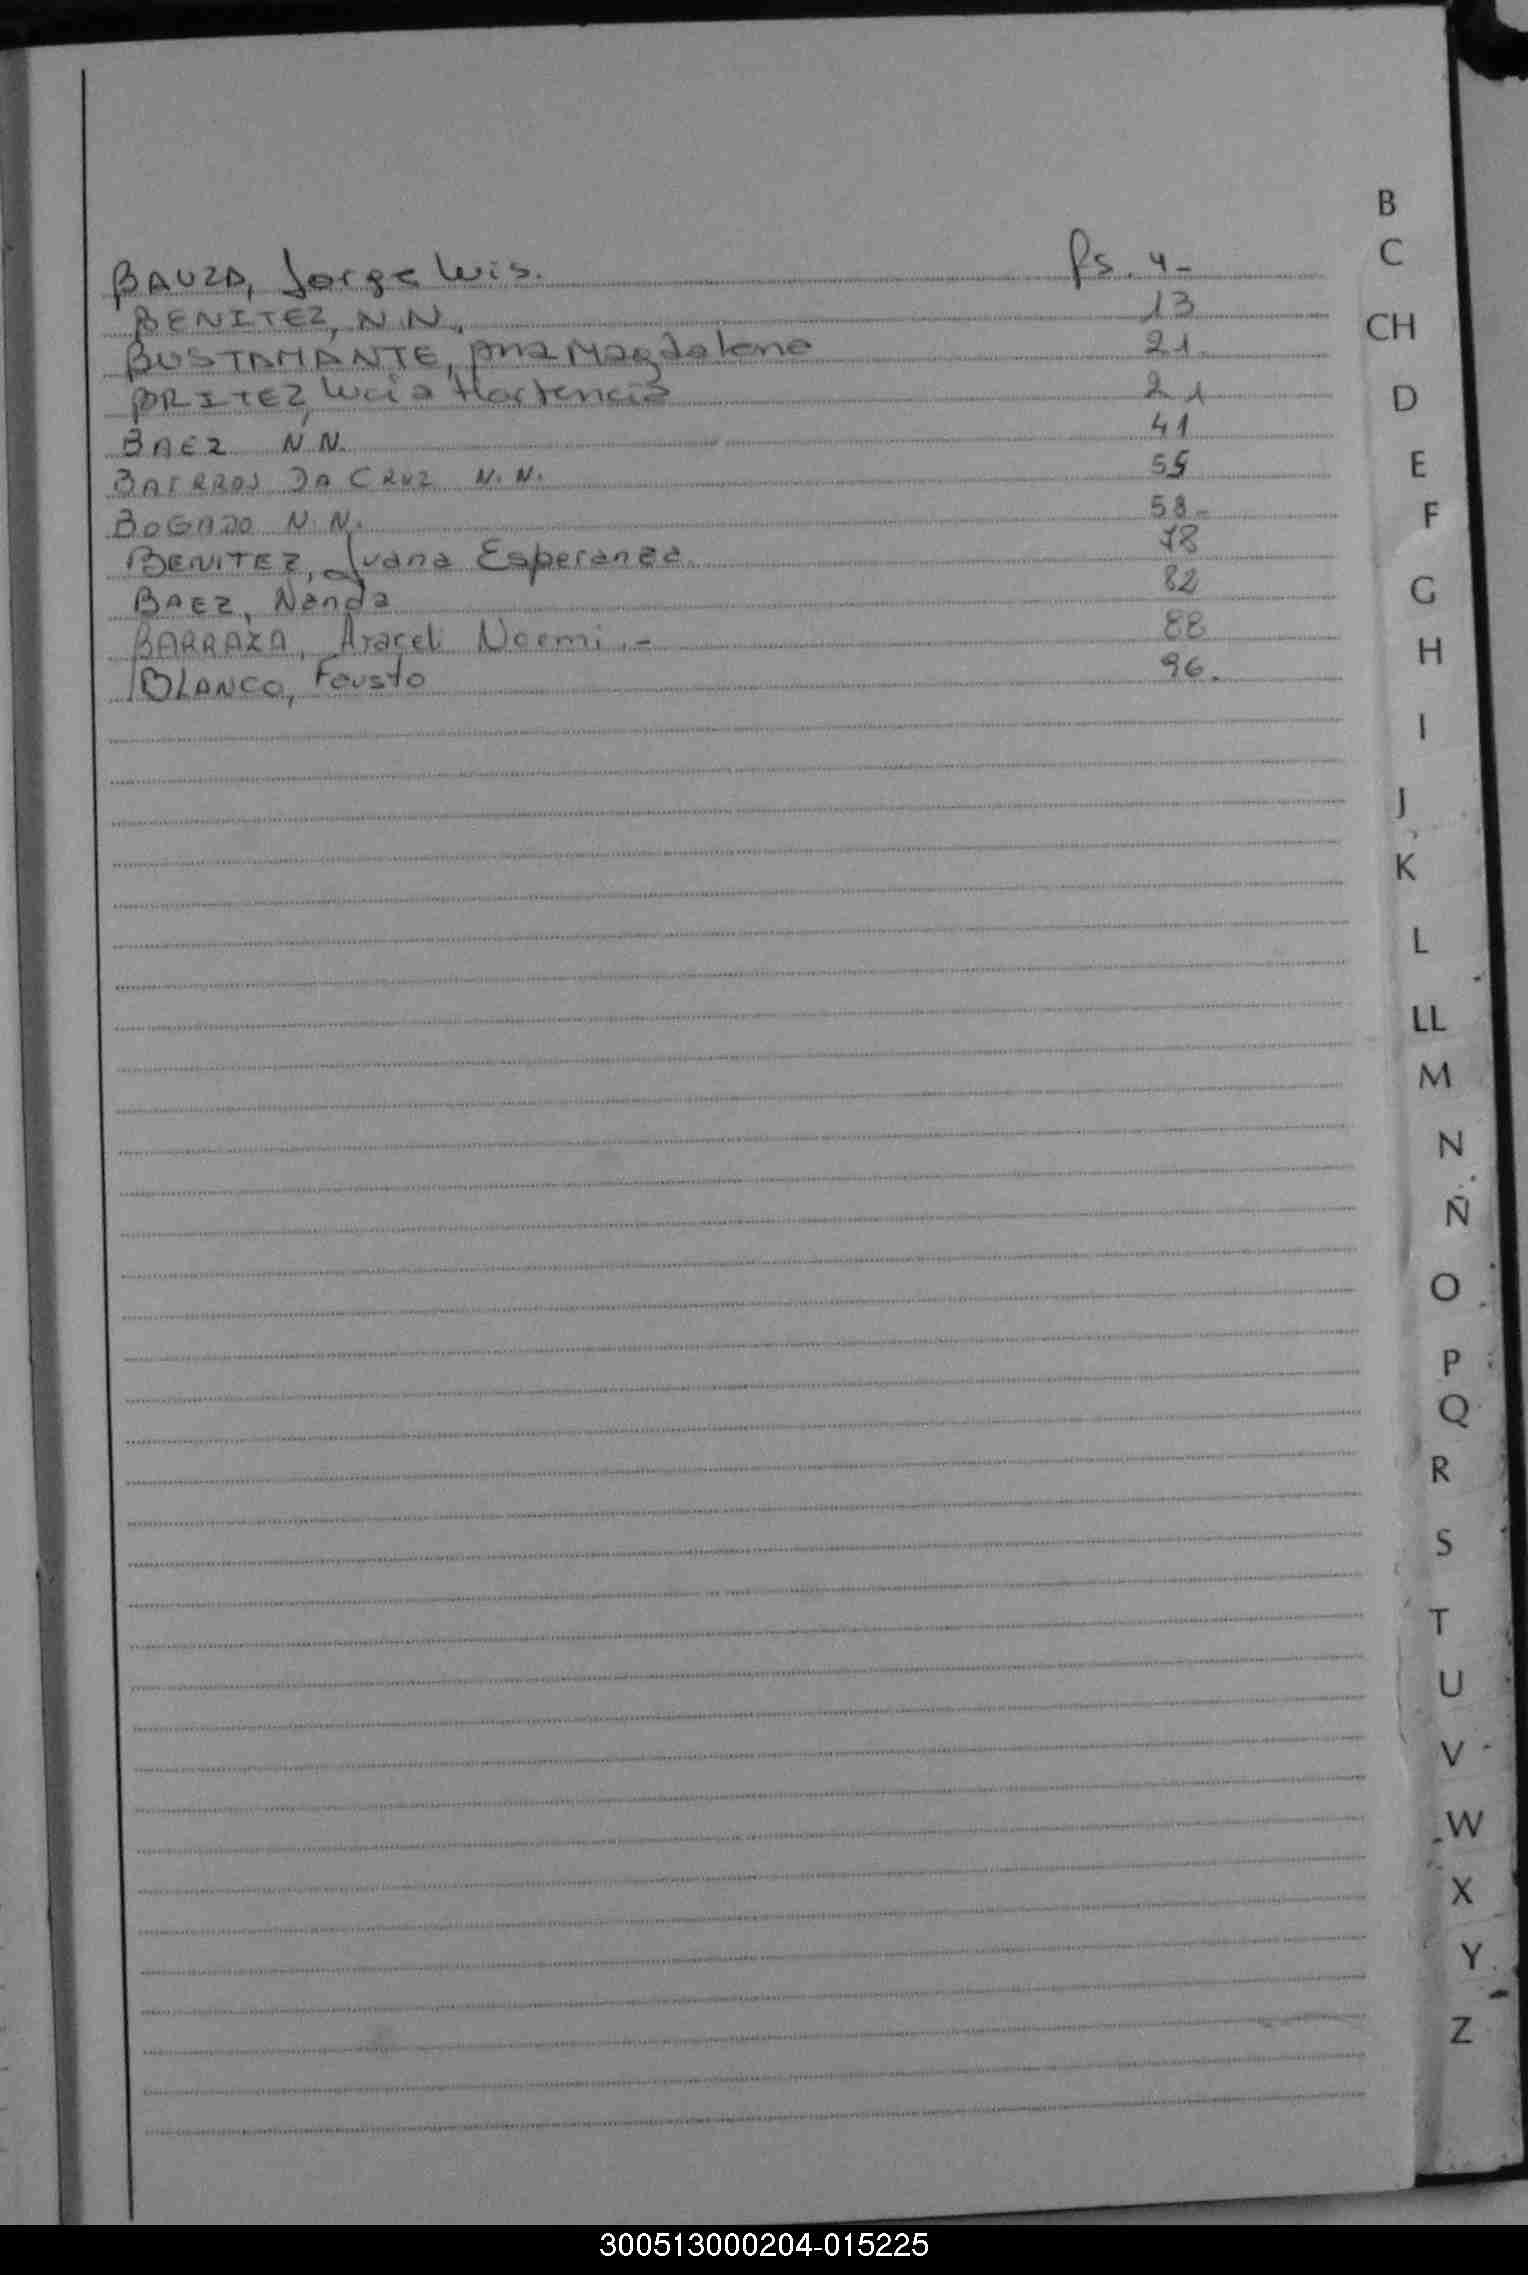 BAUZA, Jorge Luis. fs. 4-
BENITEZ, N.N. 13
BUSTAMANTE, Ana Magdalena 21.
BRITEZ, Lucia Hortencia 21
BAEZ N.N. 41
BAIRROS DA CRUZ N.N. 55
BOGADO N.N. 58-
BENITEZ, Juana Esperanza. 78
BAEZ, Nanda 82
BARRAZA, Araceli Noemi.- 88
BLANCO, Fausto 96.
B
C
CH
D
E
F
G
H
I
J
K
L
LL
M
N
Ñ
O
P
Q
R
S
T
U
V
W
X
Y
Z
300513000204-015225